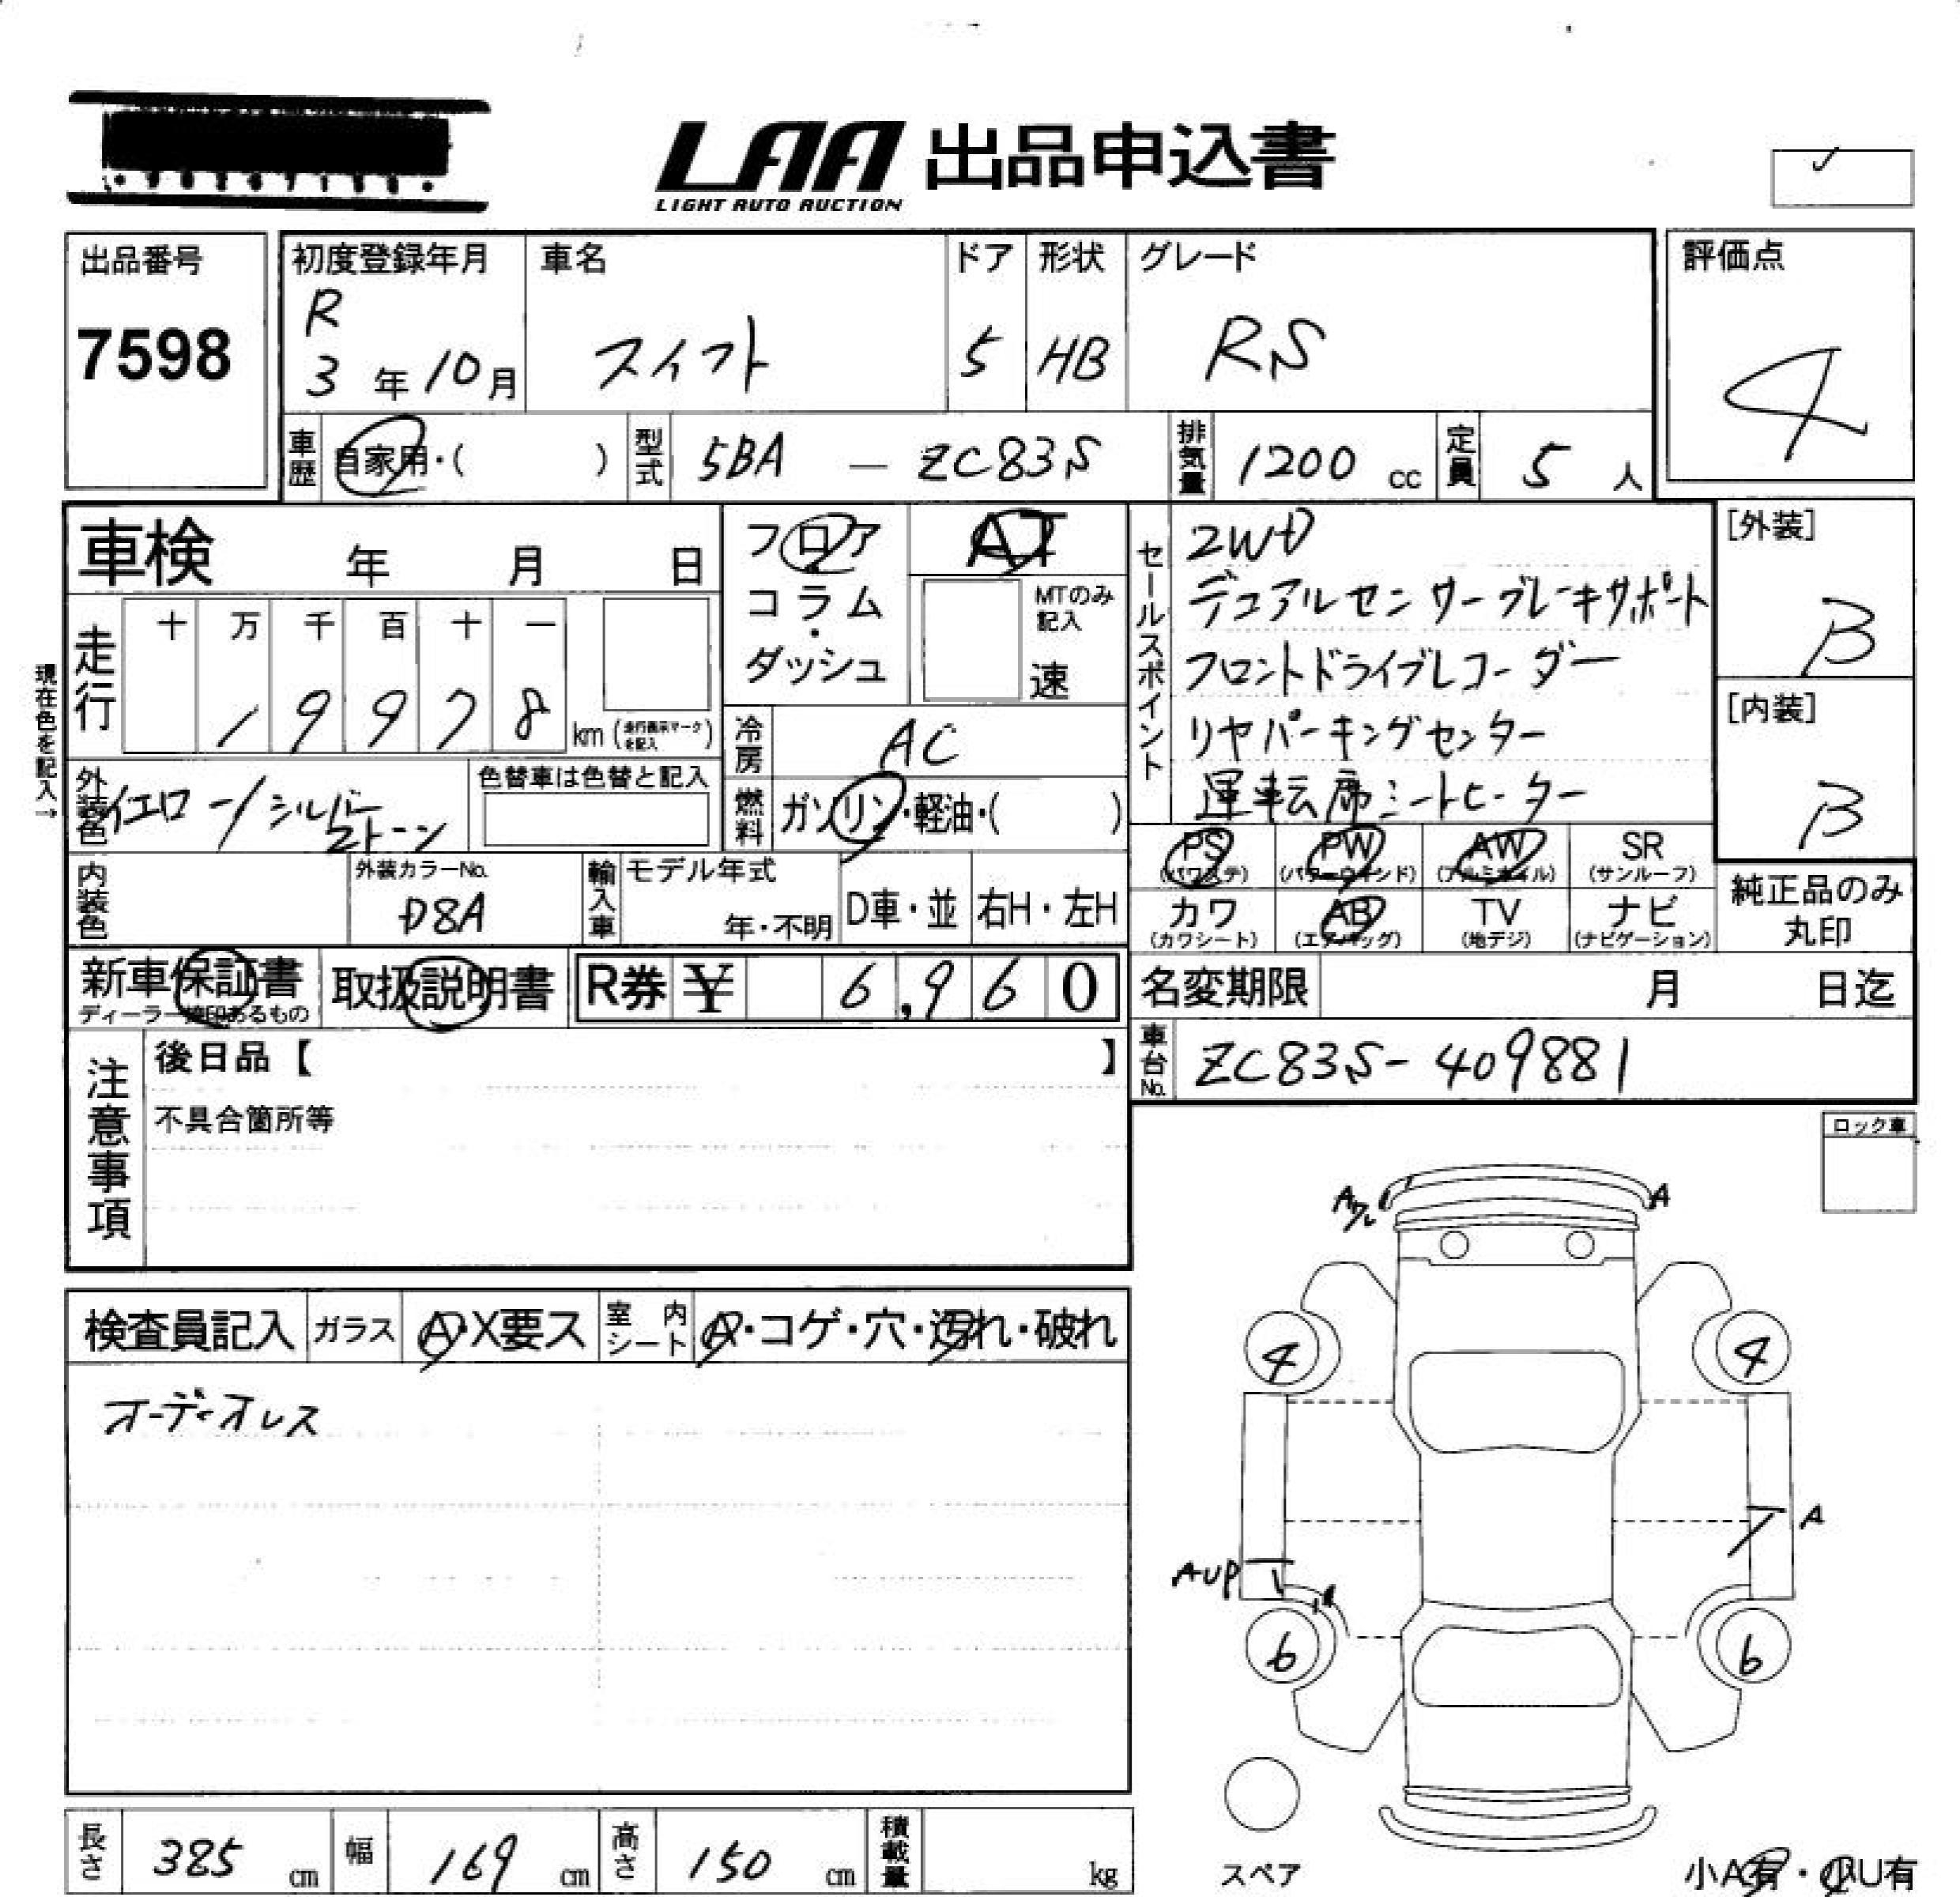 LAA 出品申込書
LIGHT AUTO AUCTION
✓
出品番号
7598
初度登録年月
R
3 年 10 月
車名
スイフト
ドア
5
形状
HB
グレード
RS
評価点
4
車歴 自家用・( )
型式 5BA — ZC83S
排気量 1200 cc
定員 5 人
車検 年 月 日
走行
十 万 千 百 十 一
1 9 9 7 8 km (走行表示マークを記入)
現在色を記入→
外装色 イエロー/シルバー
2トーン
色替車は色替と記入
内装色
外装カラーNo.
D8A
輸入車
モデル年式
年・不明
D車・並
右H・左H
フロア
コラム
・
ダッシュ
AT
MTのみ
記入
速
冷房 AC
燃料 ガソリン・軽油・( )
セールスポイント
2WD
デュアルセンサーブレーキサポート
フロントドライブレコーダー
リヤパーキングセンター
運転席シートヒーター
[外装]
B
[内装]
B
PS
(パワステ)
PW
(パワーウインド)
AW
(アルミホイル)
SR
(サンルーフ)
カワ
(カワシート)
AB
(エアバッグ)
TV
(地デジ)
ナビ
(ナビゲーション)
純正品のみ
丸印
新車保証書
ディーラー捺印あるもの
取扱説明書
R券 ¥ 6,960
名変期限 月 日迄
車台No. ZC83S-409881
注意事項
後日品【 】
不具合箇所等
ロック車
検査員記入
ガラス A・X要ス
室内シート A・コゲ・穴・汚れ・破れ
オーディオレス
A
A
4
4
A
AUP
6
6
スペア
小A有・小U有
長さ 385 cm
幅 169 cm
高さ 150 cm
積載量 kg